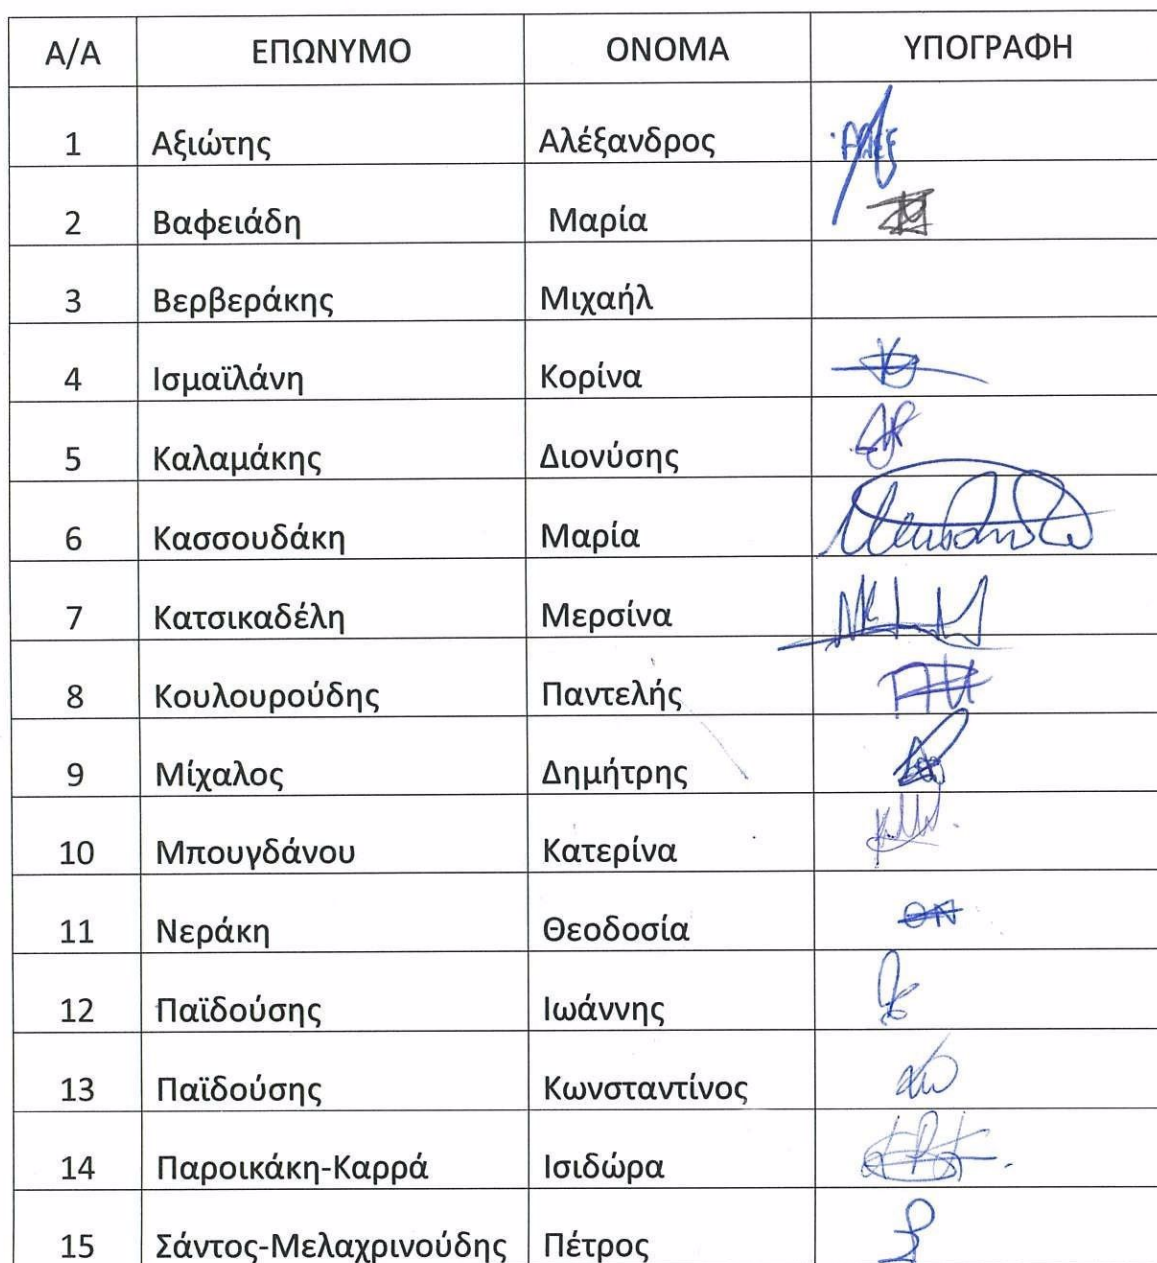 Α/Α ΕΠΩΝΥΜΟ ΟΝΟΜΑ ΥΠΟΓΡΑΦΗ
1 Αξιώτης Αλέξανδρος
2 Βαφειάδη Μαρία
3 Βερβεράκης Μιχαήλ
4 Ισμαϊλάνη Κορίνα
5 Καλαμάκης Διονύσης
6 Κασσουδάκη Μαρία
7 Κατσικαδέλη Μερσίνα
8 Κουλουρούδης Παντελής
9 Μίχαλος Δημήτρης
10 Μπουγδάνου Κατερίνα
11 Νεράκη Θεοδοσία ΘΝ
12 Παϊδούσης Ιωάννης
13 Παϊδούσης Κωνσταντίνος
14 Παροικάκη-Καρρά Ισιδώρα
15 Σάντος-Μελαχρινούδης Πέτρος